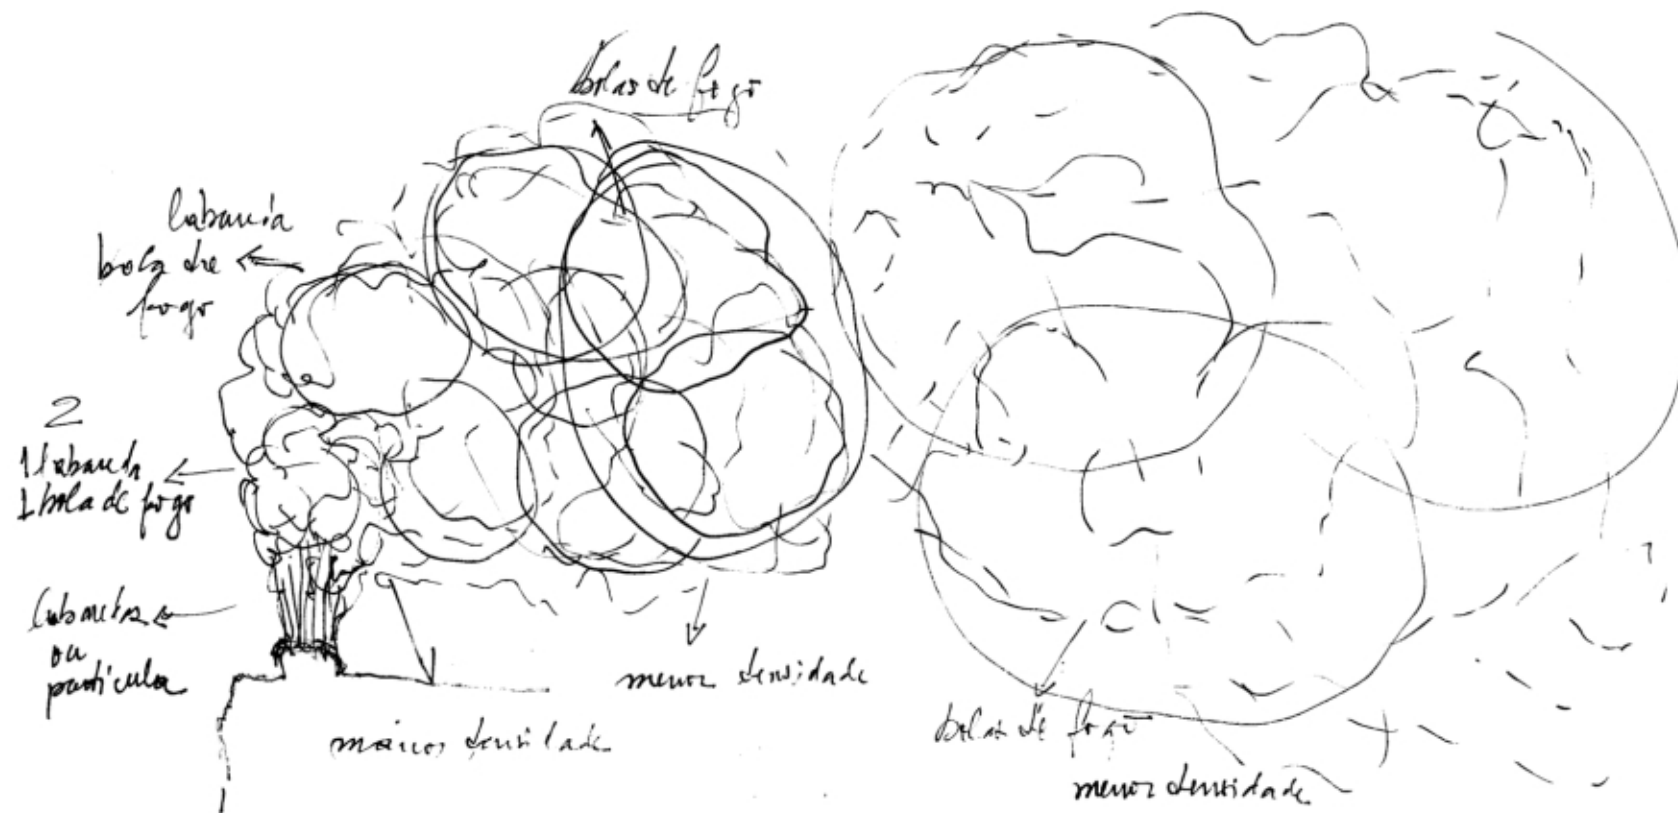 bolas de fogo
bola de
fogo
2
1 labareda
1 bola de fogo
ou
partícula
densidade
menor densidade
bolas de fogo
menor densidade